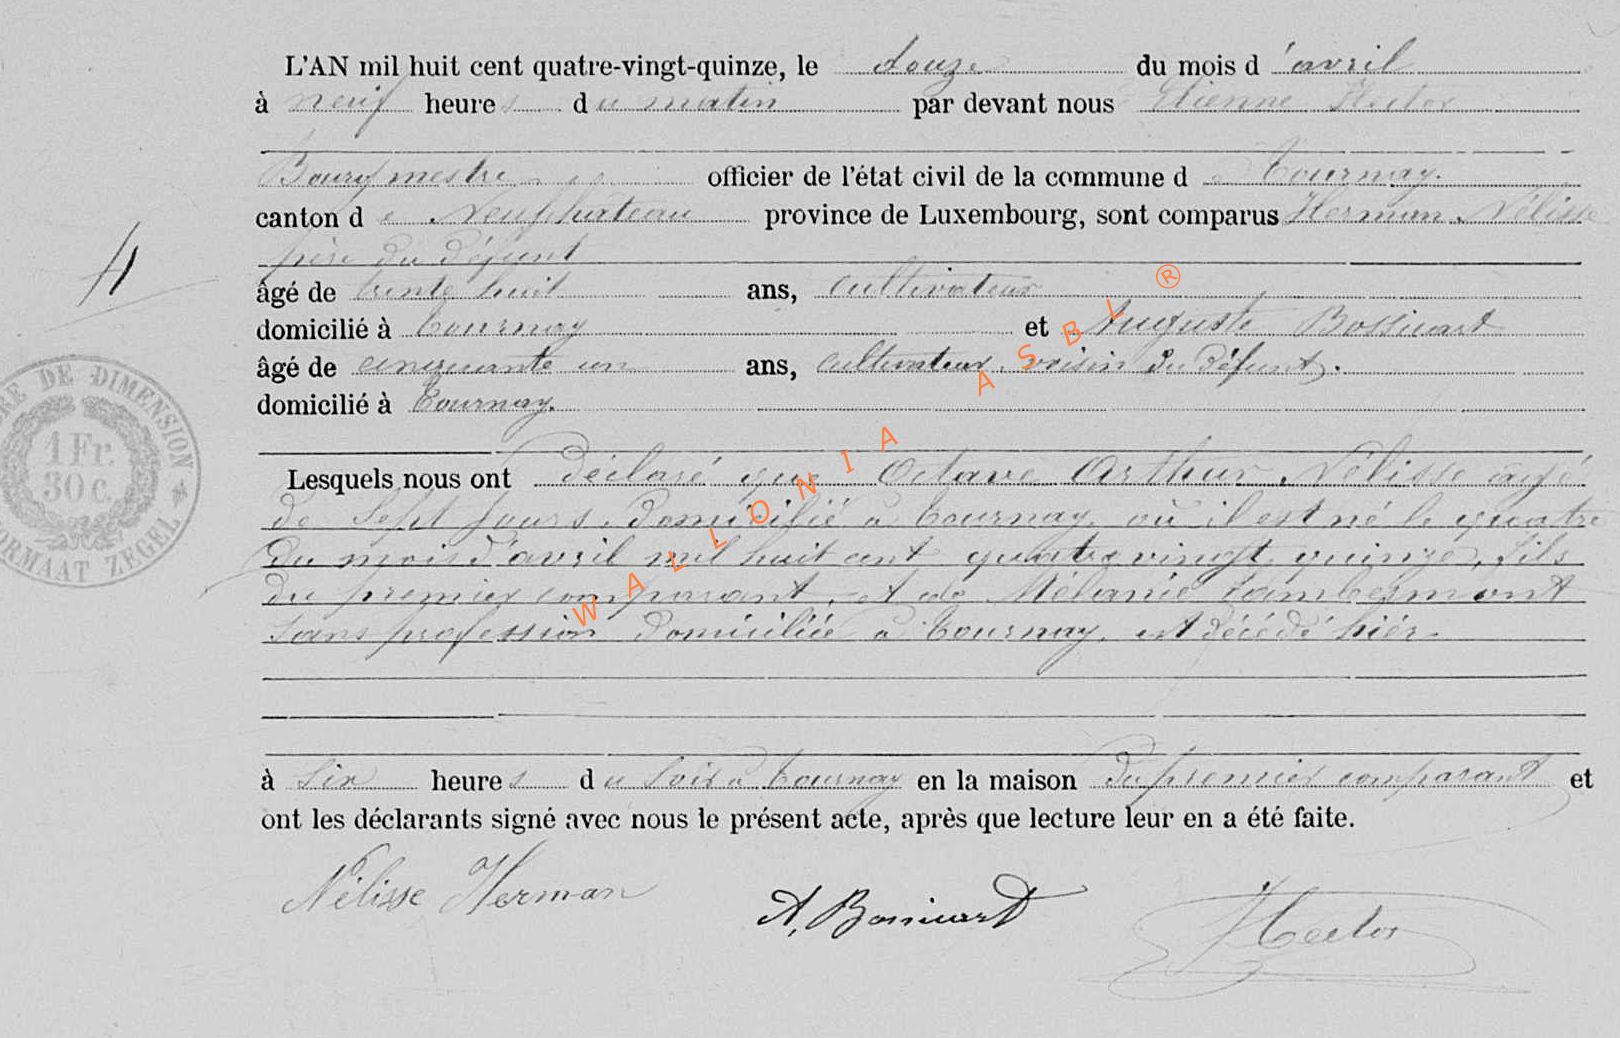 L'AN mil huit cent quatre-vingt-quinze, le douze du mois d'avril
à neuf heures du matin par devant nous Etienne Hector
Bourgmestre officier de l'état civil de la commune de Tournay.
canton de Neufchateau province de Luxembourg, sont comparus Herman Nélisse
père du défunt
âgé de trente huit ans, cultivateur
domicilié à Tournay et Auguste Bossicart
âgé de cinquante un ans, cultivateur, voisin du défunt.
domicilié à Tournay.
4
RE DE DIMENSION
1 Fr.
30 c.
FORMAAT ZEGEL
Lesquels nous ont déclaré que Octave Arthur Nélisse agé
de sept jours, domicilié à Tournay, où il est né le quatre
du mois d'avril mil huit cent quatre vingt quinze, fils
du premier comparant, et de Mélanie Lambermont
sans profession domiciliée à Tournay, est décédé hier
à six heures du soir à Tournay en la maison du premier comparant et
ont les déclarants signé avec nous le présent acte, après que lecture leur en a été faite.
Nélisse Herman
A. Bossicart
Hector
WALLONIA ASBL ®